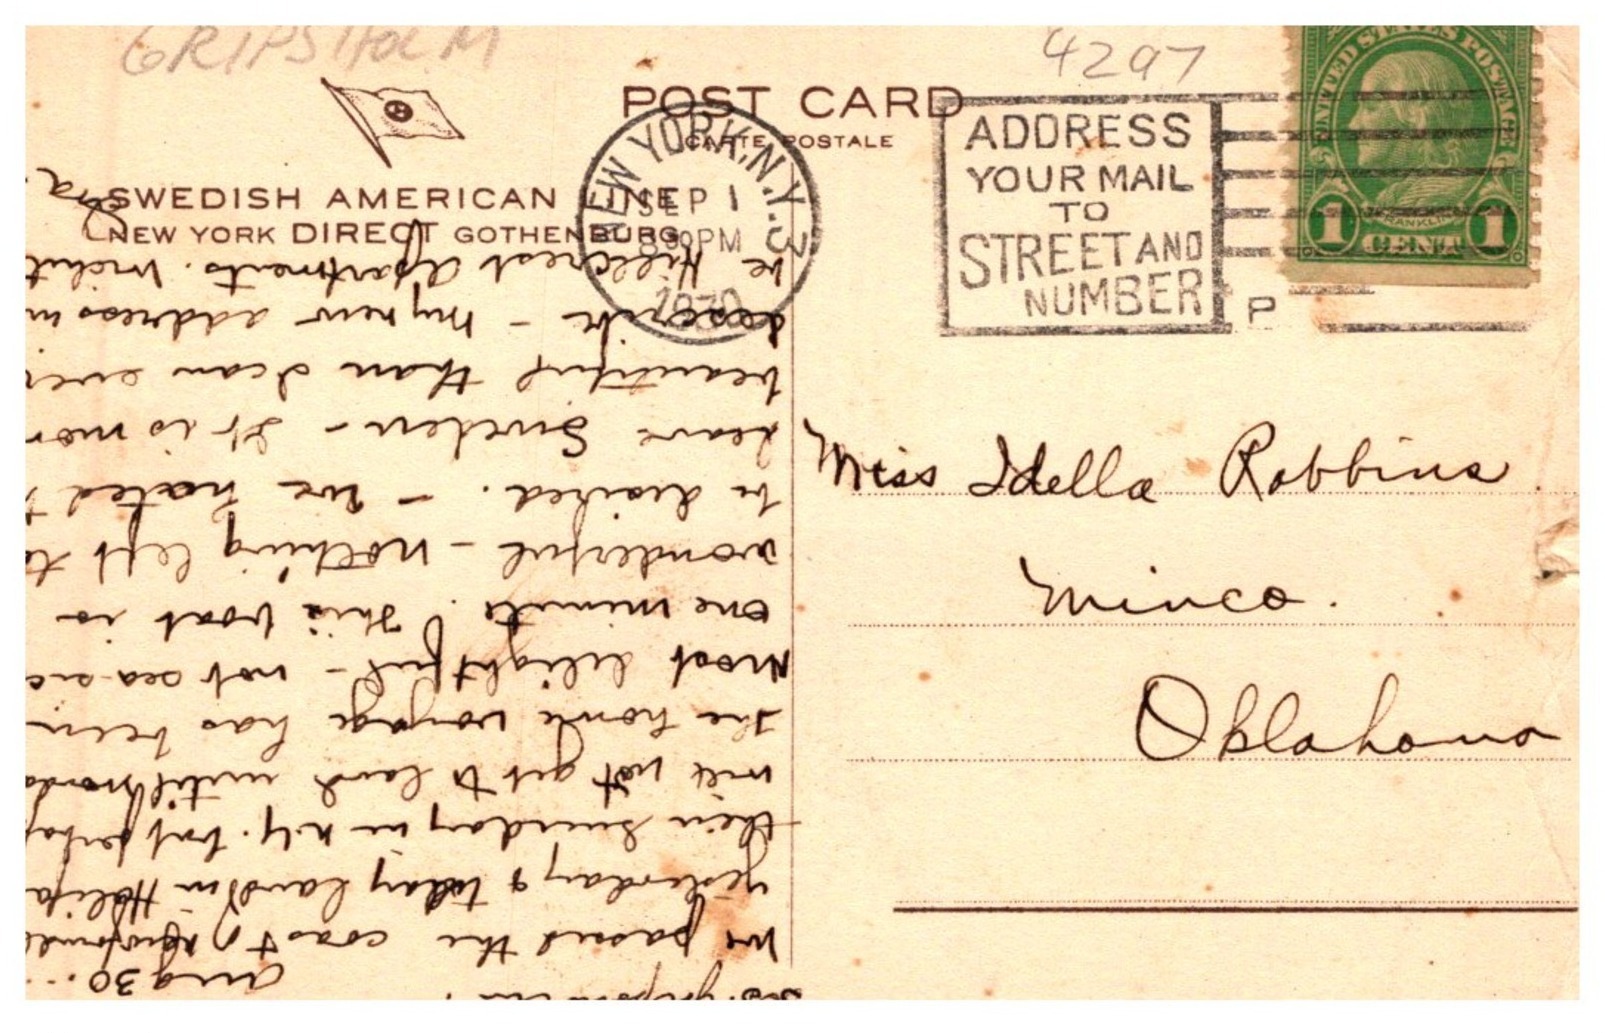 GRIPSHOLM
4297
POST CARD
CARTE POSTALE
SWEDISH AMERICAN LINE
NEW YORK DIRECT GOTHENBURG
NEW YORK, N.Y. 3
SEP 1
830 PM
1930
ADDRESS
YOUR MAIL
TO
STREET AND
NUMBER
P
UNITED STATES POSTAGE
FRANKLIN
1 CENT 1
Miss Idella Robbins
Minco.
Oklahoma
S.S. Gripsholm.
Aug 30 ...
We passed the coast of
yesterday & today land in Halifa
then Sunday in N.Y. but perhap
will not get to land until Monda
The home voyage has been
most delightful - not sea sic
one minute. This boat is
wonderful - nothing left to
be desired. - We hated t
leave Sweden - It is mor
beautiful than I can even
describe - My new address w
be Hillcrest Apartments.